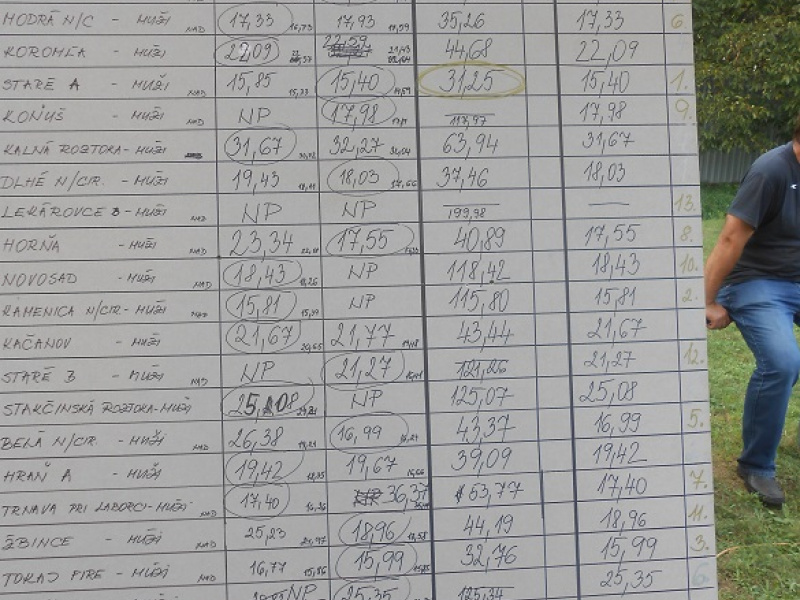 MODRÁ N/C - MUŽI NAD 17,33 16,73 17,93 35,26 17,33 6
KOROMĽA - MUŽI 22,09 22,59 44,68 22,09
STARÉ A - MUŽI NAD 15,85 15,33 15,40 31,25 15,40 1.
KONUŠ - MUŽI NP 17,98 117,97 17,98 9.
KALNÁ ROZTOKA - MUŽI 31,67 32,27 63,94 31,67
DLHÉ N/CIR. - MUŽI 19,43 18,03 17,66 37,46 18,03
LEKÁROVCE B - MUŽI NAD NP NP 199,98 — 13.
HORŇA - MUŽI NAD 23,34 17,55 40,89 17,55 8.
NOVOSAD - MUŽI NAD 18,43 NP 118,42 18,43 10.
KAMENICA N/CIR - MUŽI NAD 15,81 NP 115,80 15,81 2.
KAČANOV - MUŽI 21,67 20,65 21,77 43,44 21,67
STARÉ B - MUŽI NAD NP 21,27 121,26 21,27 12.
STAKČINSKÁ ROZTOKA - MUŽI NP 125,07 25,08
BELÁ N/CIR. - MUŽI NAD 26,38 16,99 43,37 16,99 5.
HRAŇ A - MUŽI 19,42 19,67 39,09 19,42
TRNAVA PRI LABORCI - MUŽI NAD 17,40 16,26 36,37 53,77 17,40 7.
ŽBINCE - MUŽI NAD 25,23 24,97 18,96 44,19 18,96 11.
TOKAJ FIRE - MUŽI NAD 16,77 15,86 15,99 32,76 15,99 3.
NP 25,35 125,34 25,35 6